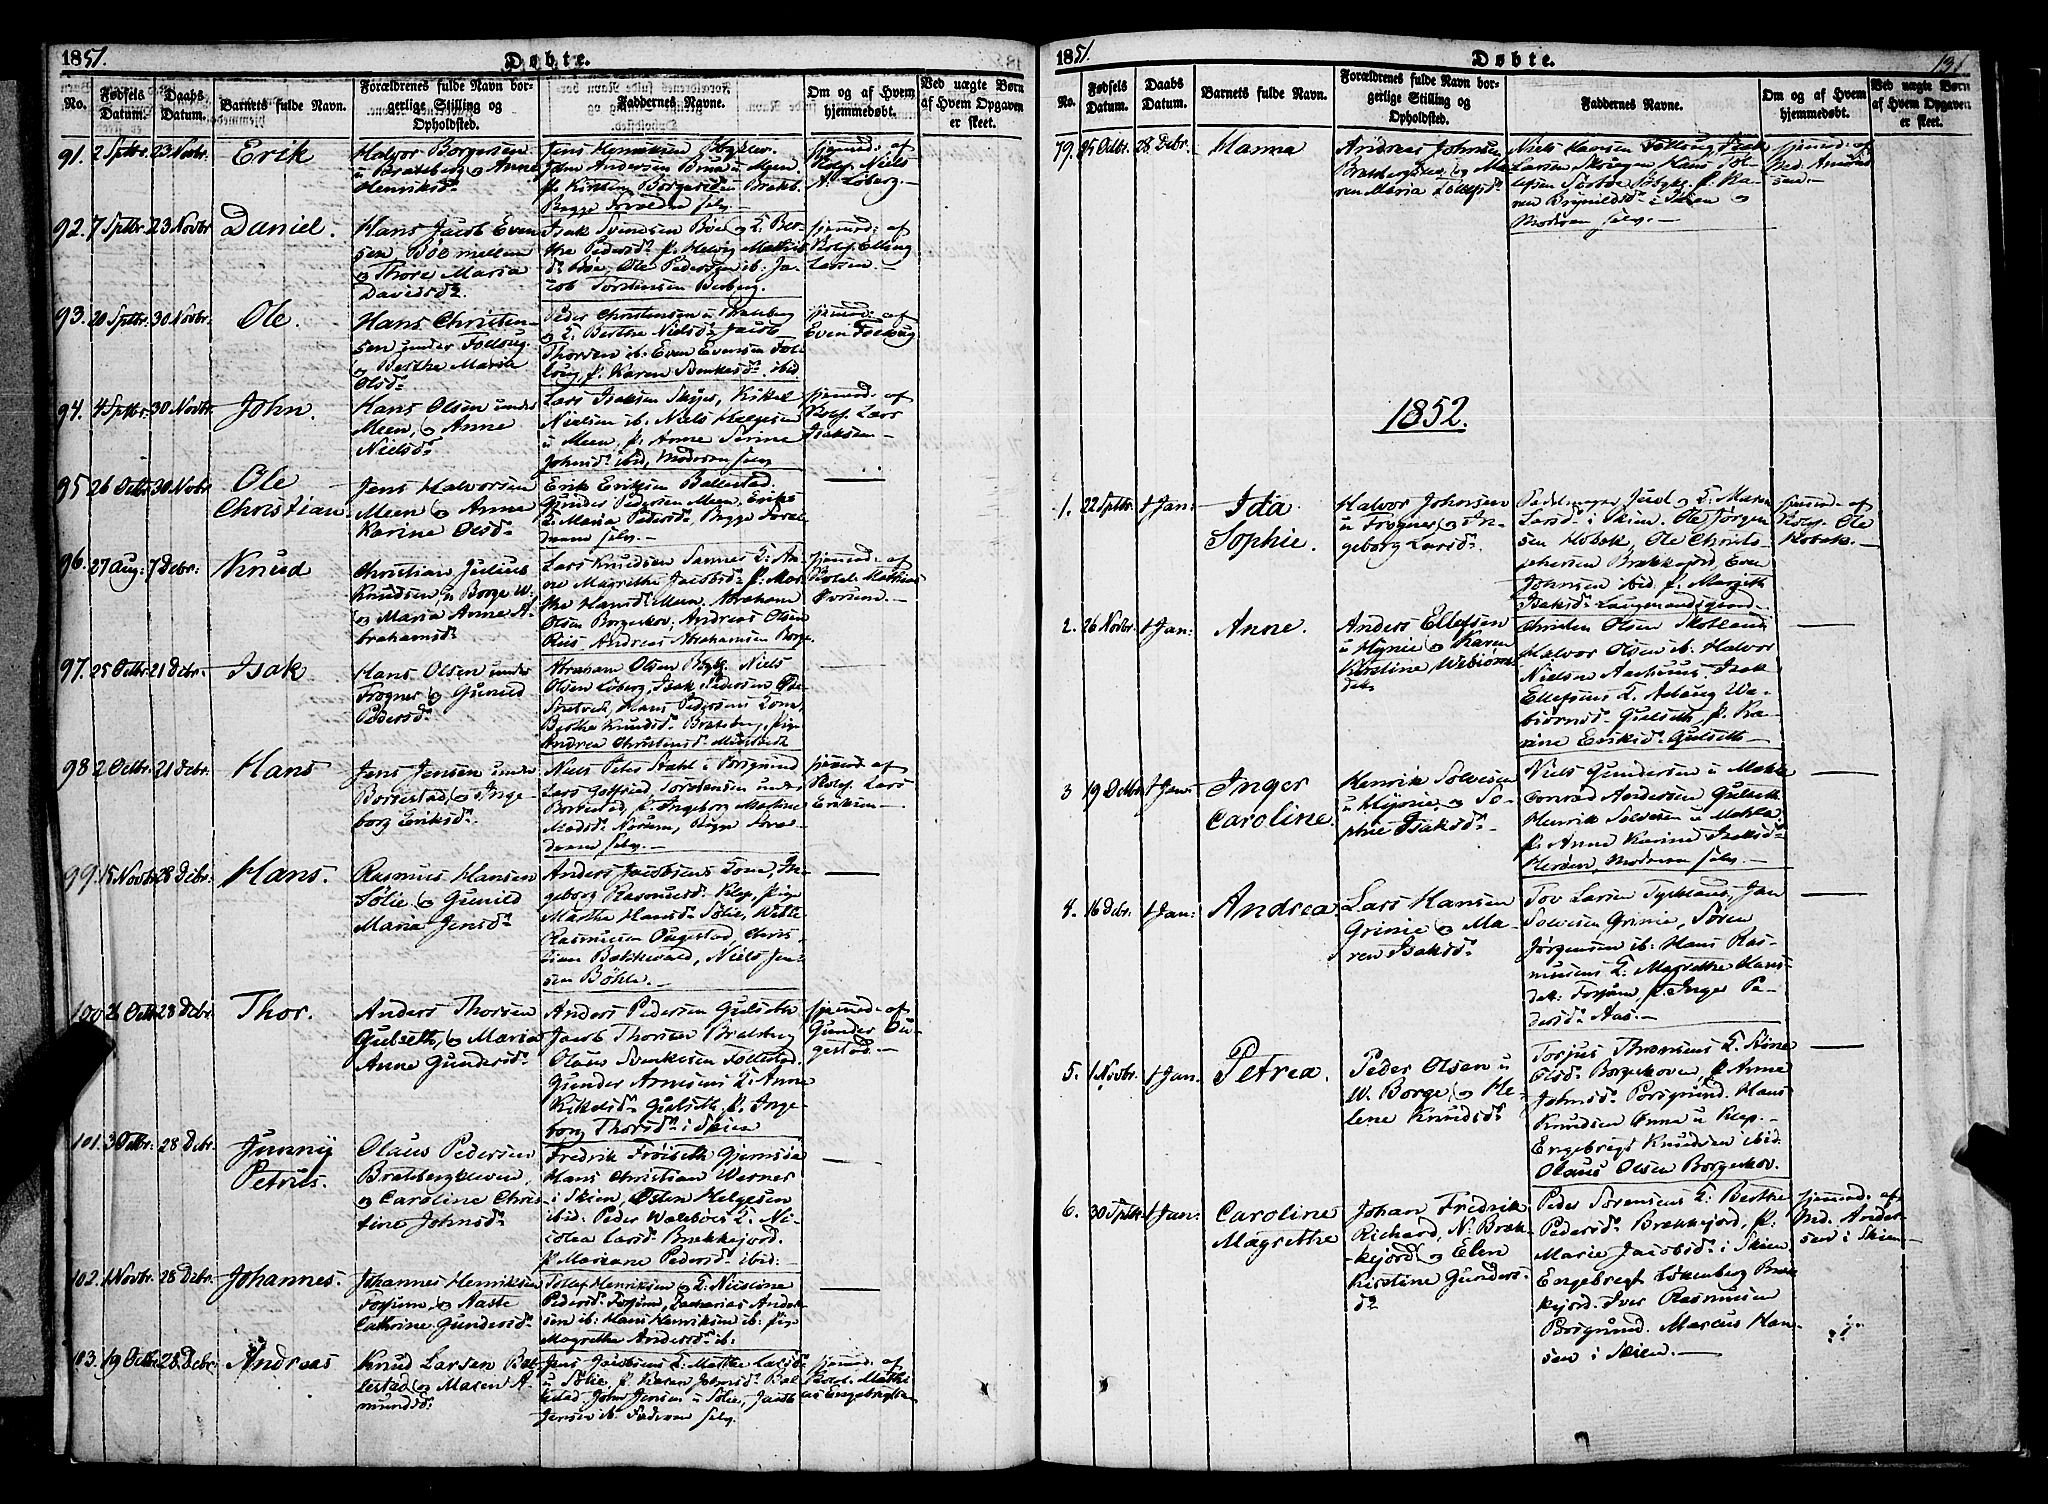 1851.
Døbte.
No.
Fødsels Datum.
Daabs Datum.
Barnets fulde Navn.
Forældrenes fulde Navn borgerlige Stilling og Opholdsted.
Faddernes Navne.
Om og af Hvem hjemmedøbt.
Ved uægte Børn af Hvem Opgaven er skeet.
91. 2 Sptbr. 23 Novbr. Erik
Halvor Borgersen
u Bratsberg og Anne
Henriksdr
Jens Henriksen
John Andersen Brua u Meen.
p. Kirsten Borgersdr Bratsb.
Begge Forældre selv.
hjemmed. af
Kirkes. Niels
A. Løberg.
92. 7 Sptbr. 23 Novbr Daniel.
Hans Jacob Even
sen Bøe mellem
og Thore Maria
Davidsdr
Isak Svensen Bøe og K. Ber
the Pedersdr p. Helvig Mathis
dr Bøe, Ole Pedersen ib. Ja
cob Torstensen Berberg.
hjemmed. af
Kirkes. Elling
Larsen.
93. 20 Sptbr. 30 Novbr. Ole.
Hans Christen
sen under Follaug.
og Berthe Maria
Olsdr
Peder Christensen u Bratsberg
og K. Berthe Nielsdr Jacob
Thorsen ib. Even Evensen Fol
laug, p. Karen ibid
hjemmed. af
Even Follaug
94. 4 Sptbr. 30 Novbr. John.
Hans Olsen under
Meen, og Anne
Nielsdr
Lars Isaksen Kikkel
Nielsen ib. Niels Helgesen
u Meen, p. Anne Serine
Johnsdr ibid, Moderen selv
hjemmed. af
Lars
Isaksen
95 26 Octbr 30 Novbr Ole
Christian.
Jens Halvorsen
Meen og Anne
Karine Olsdr
Erik Eriksen Ballestad.
Gunder Pedersen Meen, Eriks
K. Maria Pedersdr Begge Foræl
drene selv.
96. 27 Aug: 7 Debr: Knud
Christian Julius
Knudsen u Borge W.
og Maria Anne A
brahamsdr
Lars Knudsen Sannes K. An
ne Magrethe Jacobsdr p. Mar
the Hansdr Meen. Abraham
Olsen Borgeskov, Andreas Olsen
Riis Andreas Abrahamsen Borge.
hjemmed. af
Mathias
97. 25 Octbr 21 Debr. Isak
Hans Olsen under
Frogner og Gunild
Pedersdr
Abraham Olsen Niels
Olsen Løberg, Isak Pedersen
Hans Pedersens Kone,
Berthe Knudsdr Bratsberg, pige
Andrea Christensdr
98 2 Octbr 21 Debr. Hans
Jens Jensen under
Borrestad, og Inge
borg Eriksdr.
Niels Peter Stahl i Porsgrund
Lars Gotfried Torstensen under
Borrestad, p. Ingeborg Mathea
Madsdr Norum, Begge Foræl
drene selv.
hjemmed. af
Lars
Eriksen
99. 15 Novbr 28 Debr. Hans.
Rasmus Hansen
Sølie og Gunild
Maria Jensdr
Anders Jacobsens Kone, In
geborg Rasmusdr Klep, pige
Marthe Hansdr Sølie,
Rasmusen Augestad, Chris
tian Bakkevald, Niels Jen
sen Bøhle.
100 26 Octbr 28 Debr. Thor.
Anders Thorsen
Gulseth, og Maria
Anne Gundersdr
Anders Pedersen Gulseth
Jacob Thorsen Bratsberg
Olaus Svenkesen Follestad.
Gunder Arnesens K. Anne
Kittelsdr Gulseth p. Inge
borg Thorsdr i Skien
hjemmed. af
Gunder Au
gestad.
101. 3 Octbr. 28 Debr. Junny
Petrus.
Olaus Pedersen
Bratsbergkleven,
og Caroline Chris
tine Johnsdr
Fredrik Frøiseth Gjemsøe
Hans Christian Werner
i Skien, Østen Helgesen
ibid. Peder K. Ni
colea Larsdr Brækkejord.
p. Mariane Pedersdr ibid:
102. 1 Novbr. 28 Debr. Johannes.
Johannes Henriksen
Forsum, og Aaste
Cathrine Gundersdr
Tollef Henriksen og K. Nicoline
Pedersdr Forsum, Zacharias Ander
sen ib: Hans Henriksen ib: pige
Magrethe Andersdr ib:
103. 19 Octbr 28 Debr. Andreas
Knud Larsen Bal
lestad og Maren A
mundsdr
Jens Jacobsens K. Marthe Larsdr
u Sølie, p. Karen Johnsdr Bal
lestad John Jensen u Sølie, Jacob
Jensen ib. Faderen selv.
hjemmed. af
Mathi
as Engebregtsen
1851.
Døbte.
131
No.
Fødsels Datum.
Daabs Datum.
Barnets fulde Navn.
Forældrenes fulde Navn borgerlige Stilling og Opholdsted.
Faddernes Navne.
Om og af Hvem hjemmedøbt.
Ved uægte Børn af Hvem Opgaven er skeet.
79. Octbr. 28 Debr. Hanna
Andreas Johnsen
Bratsbergkleven og Ma
ren Maria Tollefsdr
Niels Hansen Follaug, Isak
Larsen Skougen Hans Tol
lefsen p. Ka
ren Brynildsdr i Skien og
Moderen selv.
hjemmed. af
Med. Ander
sen.
1852.
1. 22 Sptbr. 1 Jan: Ida
Sophie.
Halvor Johnsen
u Frogner og In
geborg Larsdr
Pedelmager Juel og K. Maren
Larsdr i Skien. Ole Jørgen
sen Hobæk, Ole Christo
phersen Brækkejord, Even
Johnsen ibid. p. Margith
Isaksdr Langemandsgaard.
hjemmed. af
Ole
Hobæk.
2. 26 Novbr. 1 Jan: Anne.
Anders Ellefsen
u Hynie og Karen
Kirstine Webiorns
datr
Christen Olsen Skotland
Halvor Olsen ib. Halvor
Nielsen Aarhuus, Isak
Ellefsens K. Aslaug We
biornsdr Gulseth, p. Ka
rine Eriksdr Gulseth
3 19 Octbr 1 Jan: Inger
Caroline.
Henrik Solvesen
u Hynie, og So
phie Isaksdr
Niels Gundersen u Mæhla
Conrad Andersen Gulseth
Henrik Solvesen u Mæhla,
p. Anne Karine Isaksdr
Herøen, Moderen selv.
4. 16 Debr. 1 Jan: Andrea
Lars Hansen
Grinie og Ma
ren Isaksdr
Tov Larsen Jan
Solvesen Grinie, Søren
Jørgensen ib: Hans Ras
musens K. Magrethe Hans
datr Forsum, p. Inger Pe
dersdr Aas.
5. 1 Novbr. 1 Jan. Petrea.
Peder Olsen u
W. Borge, og He
lene Knudsdr
Torjus Thronsens K. Stine
Olsdr Borgeskoven, p. Anne
Johnsdr Porsgrund. Hans
Knudsen Onna u Klep.
Engebregt Knudsen ibid.
Olaus Olsen Borgeskov.
6. 30 Sptbr. 1 Jan: Caroline
Magrethe
Johan Fredrik
Richard, N. Bræk
kejord og Elen
Kirstine Gunders
dr
Peder Sørensens K. Berthe
Pedersdr Brækkejord, p.
Marie Jacobsdr i Skien
Engebregt Løkenberg Bræk
kejord. Iver Rasmusen
Porsgrund. Marcus Han
sen i Skien.
hjemmed. af
Md. Ander
sen i Skien